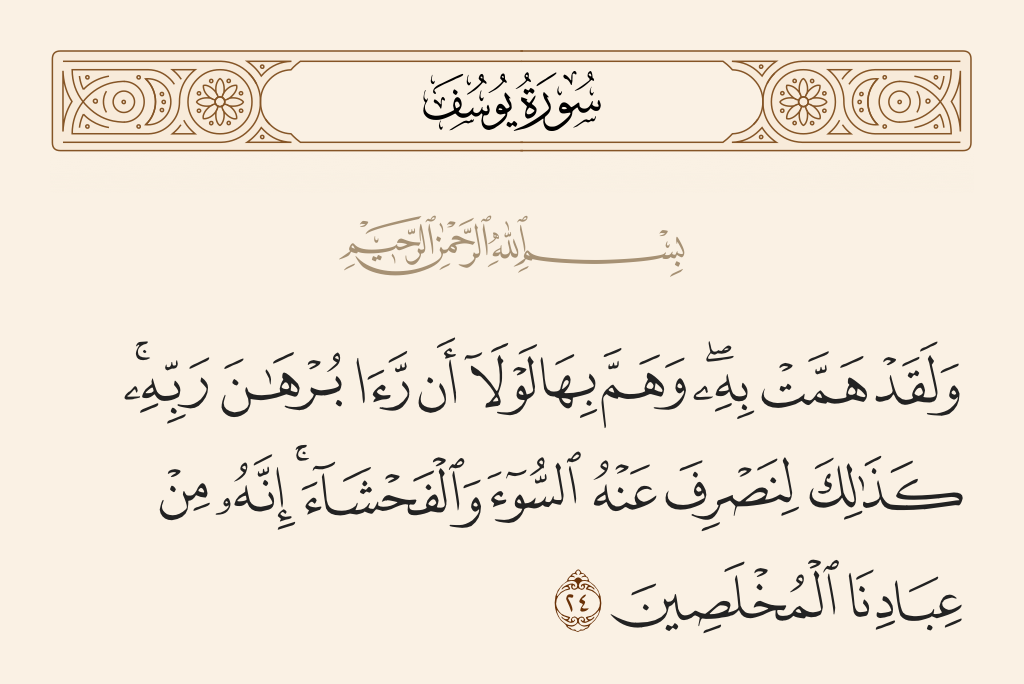 سُورَةُ يُوسُفَ
بِسْمِ ٱللَّهِ ٱلرَّحْمَٰنِ ٱلرَّحِيمِ
وَلَقَدْ هَمَّتْ بِهِۦۖ وَهَمَّ بِهَا لَوْلَآ أَن رَّءَا بُرْهَٰنَ رَبِّهِۦۚ
كَذَٰلِكَ لِنَصْرِفَ عَنْهُ ٱلسُّوٓءَ وَٱلْفَحْشَآءَۚ إِنَّهُۥ مِنْ
عِبَادِنَا ٱلْمُخْلَصِينَ ٢٤